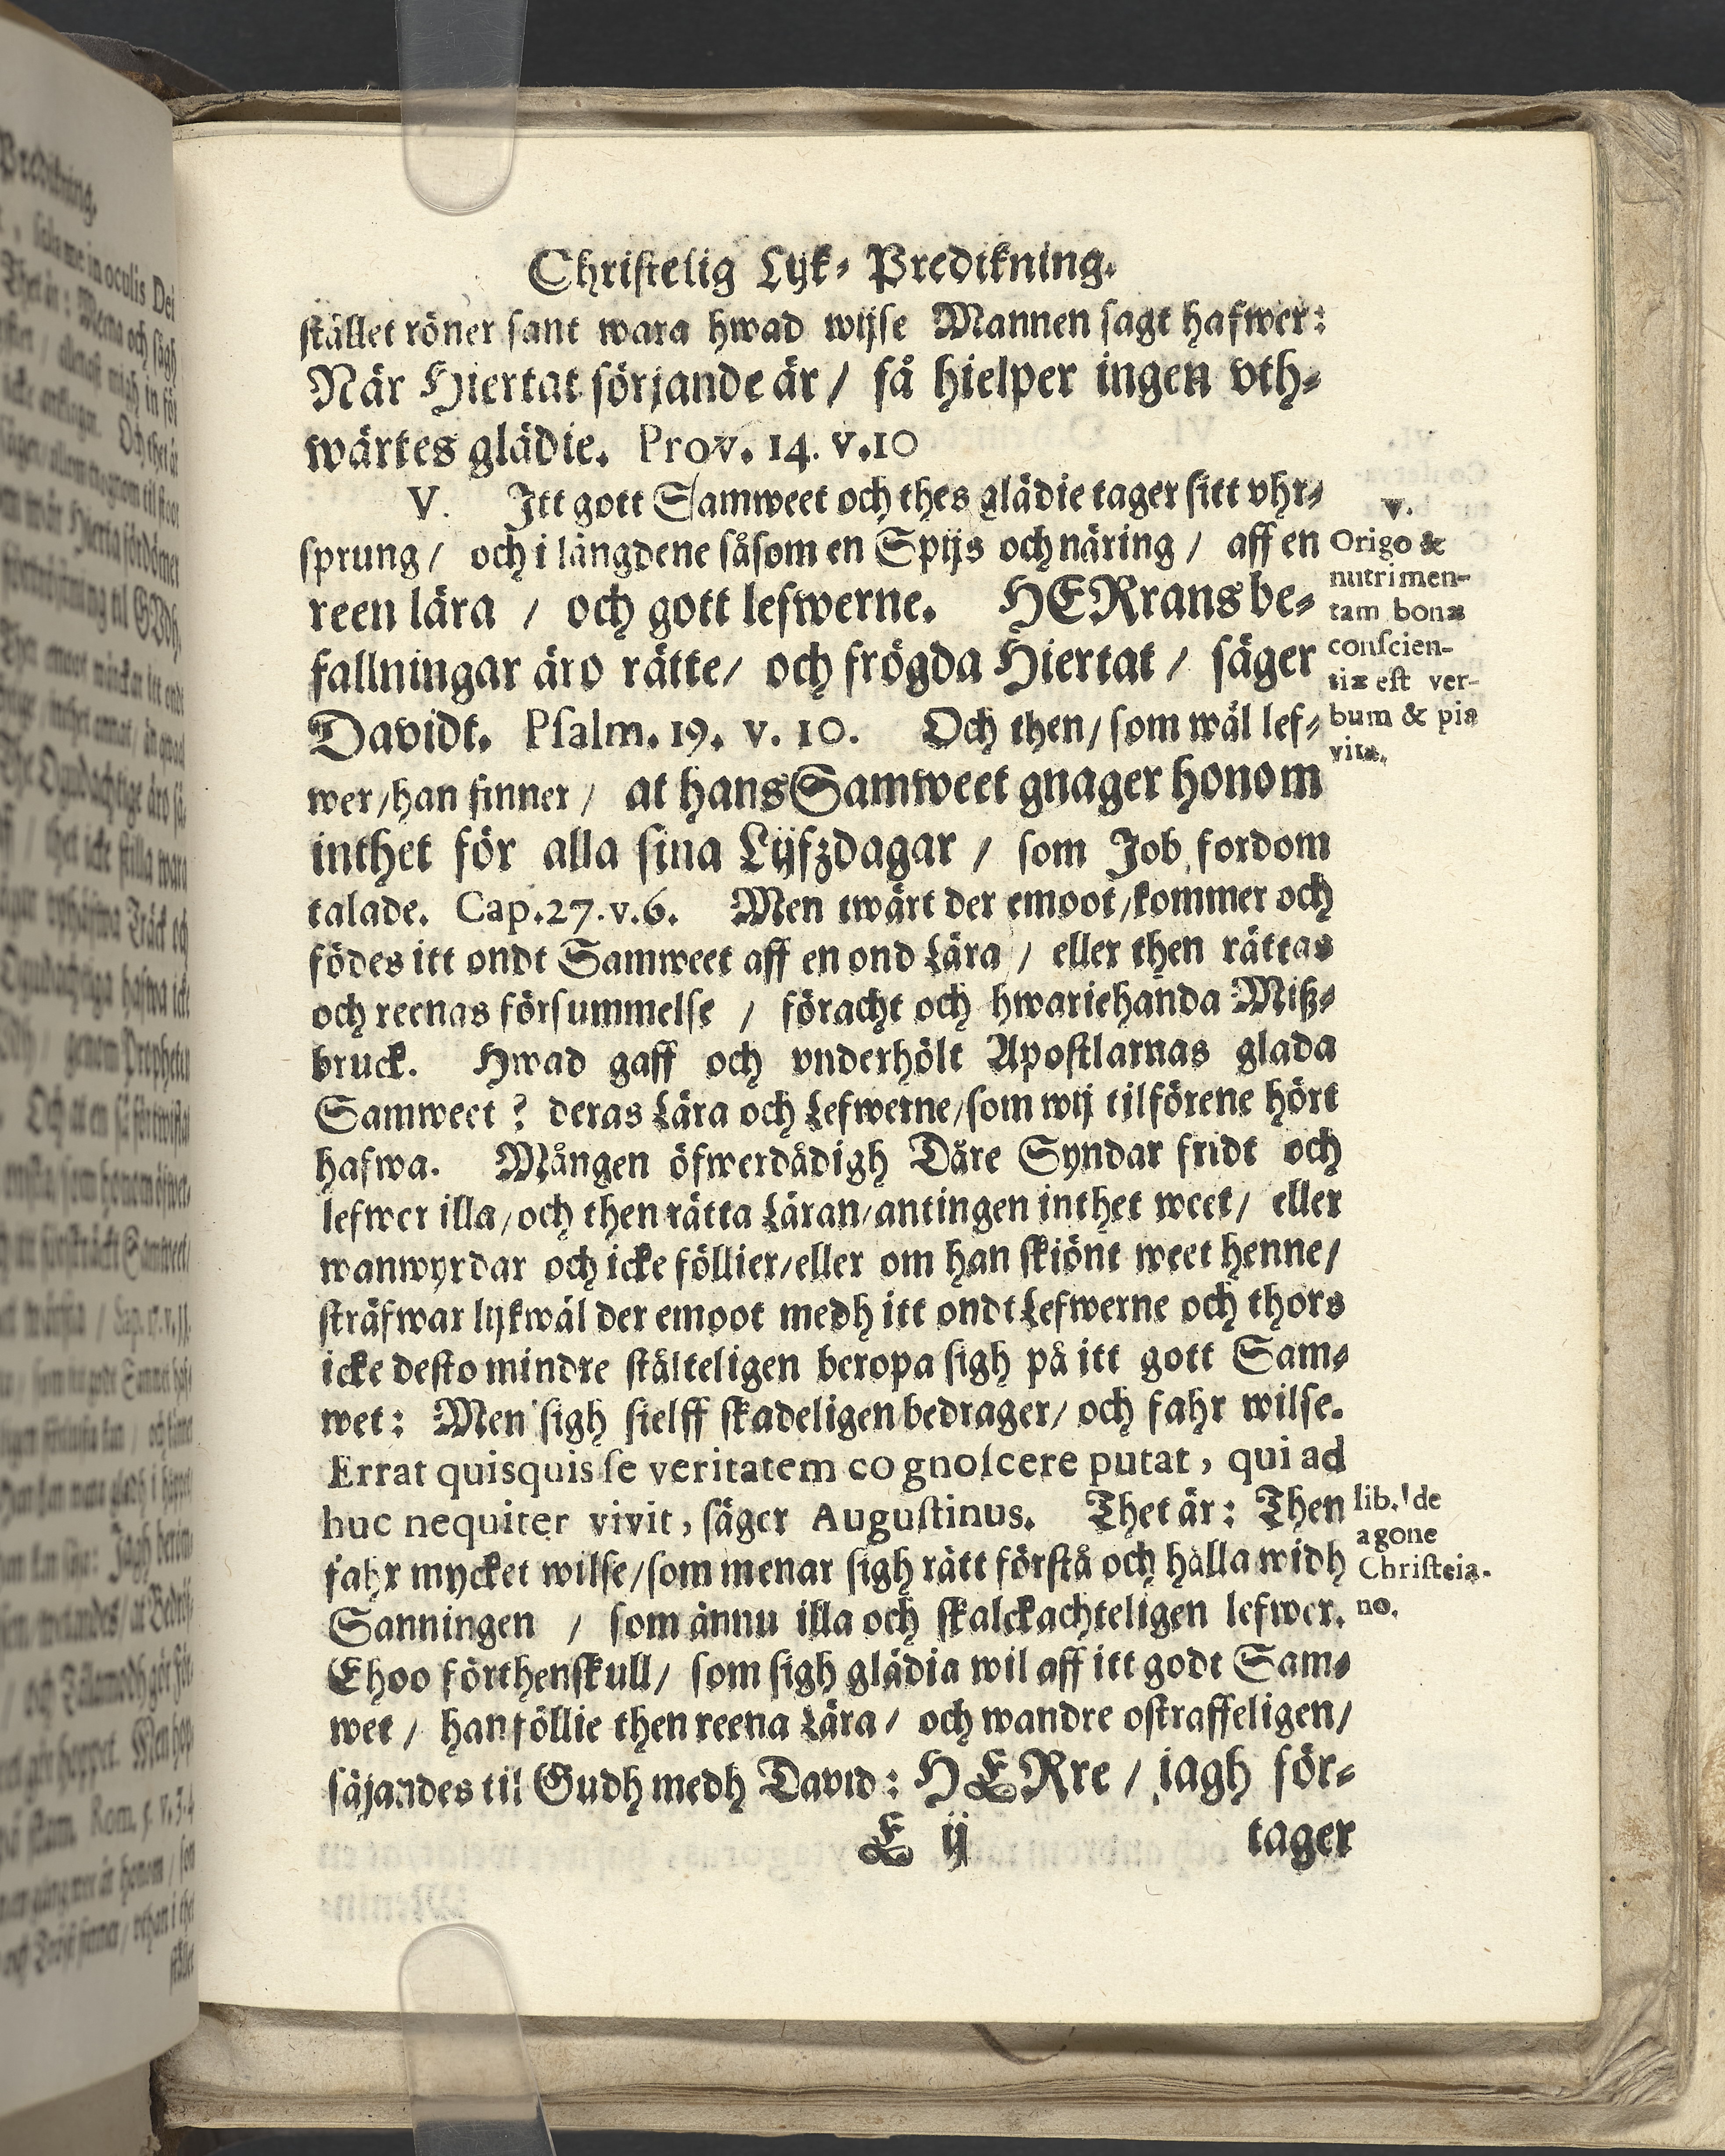 Christelig Lijk-Predikning.
stället röner sant wara hwad wijse Mannen sagt hafwer:
När Hiertat sörjande är / så hielper ingen vth-
wärtes glädie. Prov. 14. v.10
V. Itt gott Samweet och thes glädie tager sitt vhr-
sprung / och i längdene såsom en Spijs och näring / aff en
reen lära / och gott lefwerne. HERrans be-
fallningar äro rätte/ och frögda Hiertat / säger
Davidt. Psalm. 19. v. 10. Och then/ som wäl lef-
wer/han finner / at hans Samweet gnager honom
inthet för alla sina Lijfzdagar / som Job fordom
talade. Cap.27.v.6. Men twärt der emoot/kommer och
födes itt ondt Samweet aff en ond Lära / eller then rättas
och reenas försummelse / föracht och hwariehanda Miß-
bruck. Hwad gaff och vnderhölt Apostlarnas glada
Samweet ? deras Lära och Lefwerne/som wij tilförene hört
hafwa. Mången öfwerdådigh Dåre Syndar fridt och
lefwer illa/och then rätta Läran/antingen inthet weet/ eller
wanwyrdar och icke föllier/eller om han skiönt weet henne/
sträfwar lijkwäl der emoot medh itt ondt Lefwerne och thors
icke desto mindre stälteligen beropa sigh på itt gott Sam-
wet: Men sigh sielff skadeligen bedrager/ och fahr wilse.
Errat quisquis se veritatem cognoscere putat, qui ad
huc nequiter vivit, säger Augustinus. Thet är: Then
fahr mycket wilse/som menar sigh rätt förstå och hålla widh
Sanningen / som ännu illa och skalckachteligen lefwer.
Ehoo förthenskull/ som sigh glädia wil aff itt godt Sam-
wet / han föllie then reena Lära / och wandre ostraffeligen/
säjandes til Gudh medh David: HERre / jagh för-
E ij tager
v.
Origo &
nutrimen-
tam bonæ
conscien-
tiæ est ver-
bum & pia
vita.
lib. de
agone
Christeia-
no.